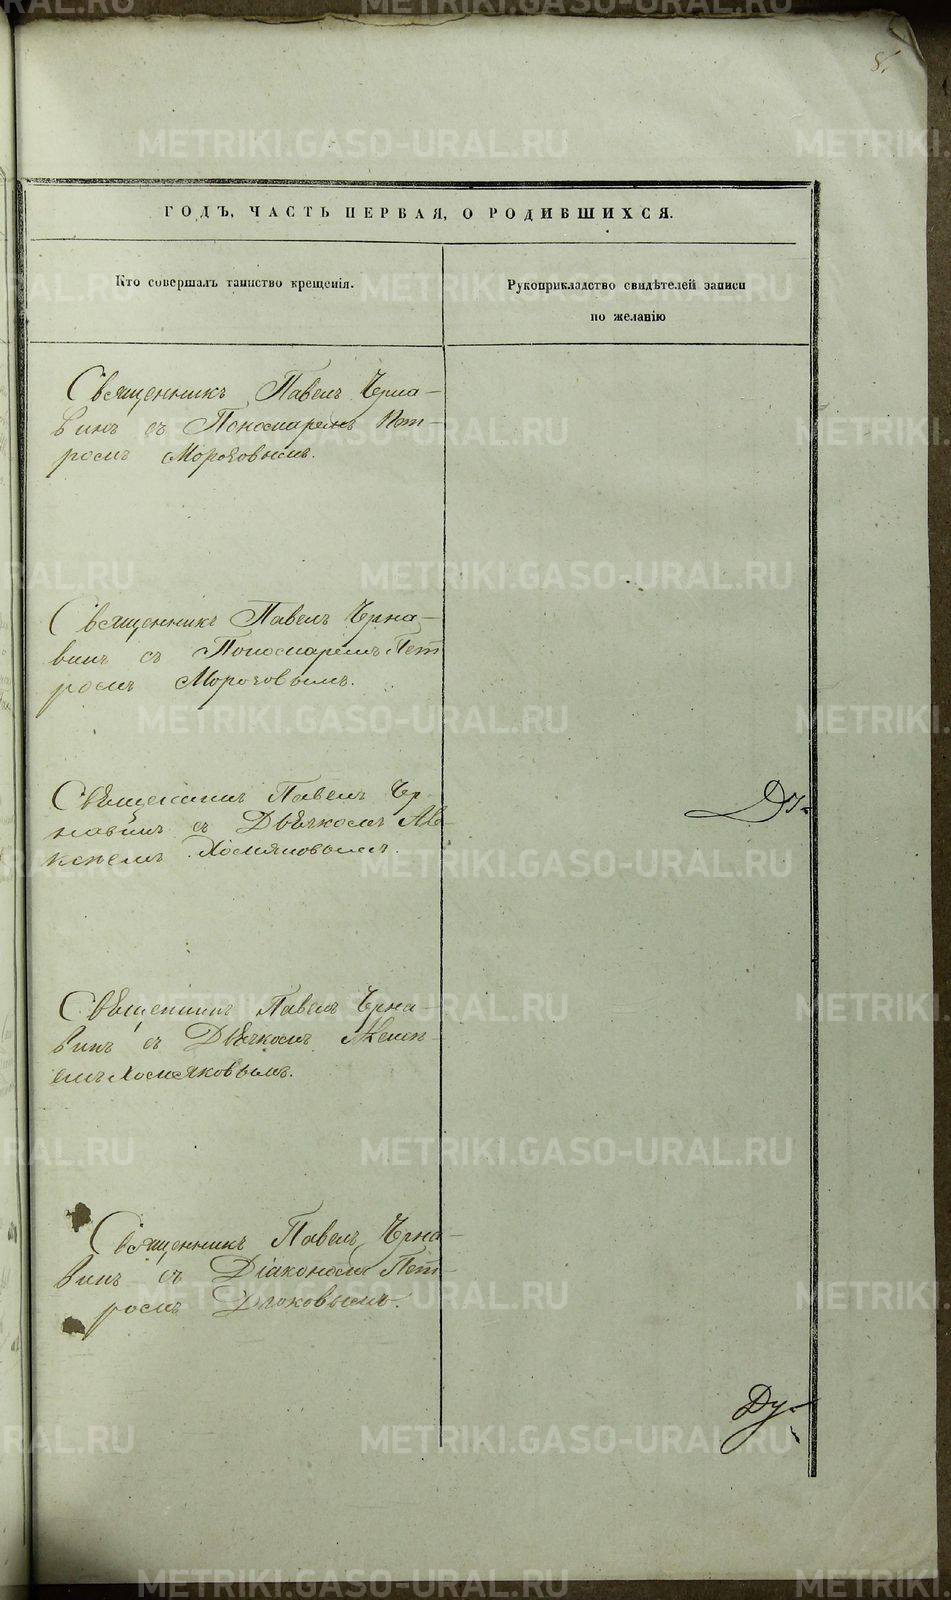 8.
ГОДЪ, ЧАСТЬ ПЕРВАЯ, О РОДИВШИХСЯ.
Кто совершалъ таинство крещенія.
Рукоприкладство свидѣтелей записи
по желанію
Священникъ Павелъ Черна-
винъ съ Пономаремъ Пет-
ромъ Морозовымъ.
Священникъ Павелъ Черна-
винъ съ Пономаремъ Пет
ромъ Морозовымъ.
Свѣщенникъ Павелъ Чер-
навинъ съ Дьячкомъ
Хомяковымъ.
Свѣщенникъ Павелъ Черна
винъ съ Дьячкомъ
Хомяковымъ.
Священникъ Павелъ Черна-
винъ съ Діакономъ Пет-
ромъ
Ду-
METRIKI.GASO-URAL.RU